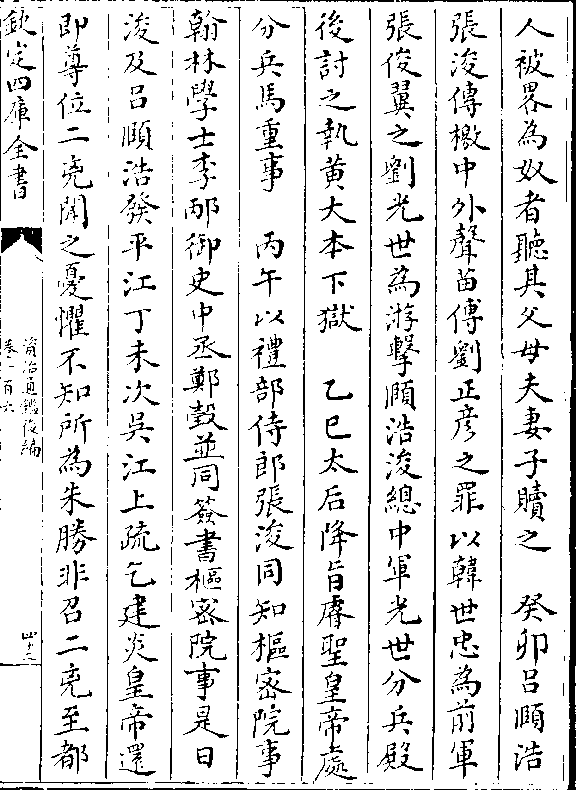 人被畧為奴者聽其父母夫妻子贖之　癸卯吕頤浩
張浚傳檄中外聲苗傅劉正彦之罪以韓世忠為前軍
張俊翼之劉光世為游擊頤浩浚總中軍光世分兵殿
後討之執黄大本下獄　乙巳太后降旨睿聖皇帝處
分兵馬重事　丙午以禮部侍郎張浚同知樞密院事
翰林學士李邴御史中丞鄭瑴並同簽書樞密院事是日
浚及吕頤浩發平江丁未次吳江上疏乞建炎皇帝還
即尊位二兇聞之憂懼不知所為朱勝非召二兇至都
欽定四庫全書
資治通鑑後編
卷一百六
四十二